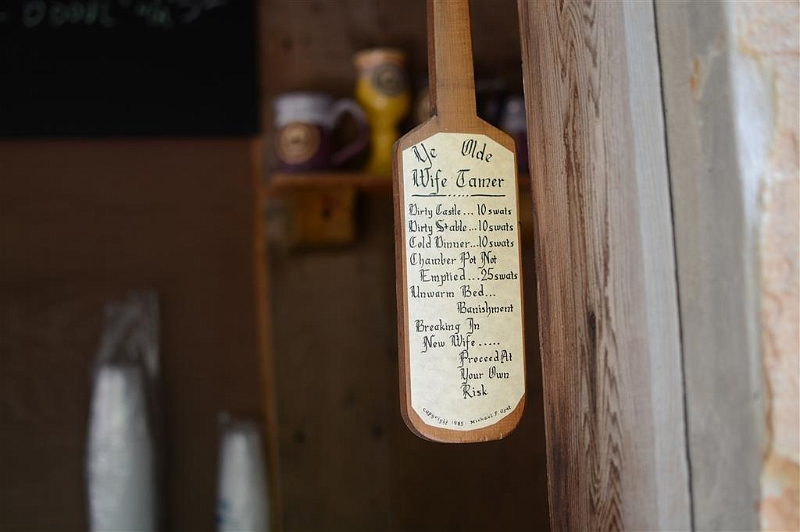 Ye Olde
Wife Tamer
Dirty Castle... 10 swats
Dirty Stable...10 swats
Cold Dinner...10 swats
Chamber Pot Not
Emptied...25 swats
Unwarm Bed...
Banishment
Breaking In
New Wife.....
Proceed At
Your Own
Risk
Copyright 1985 Michael F